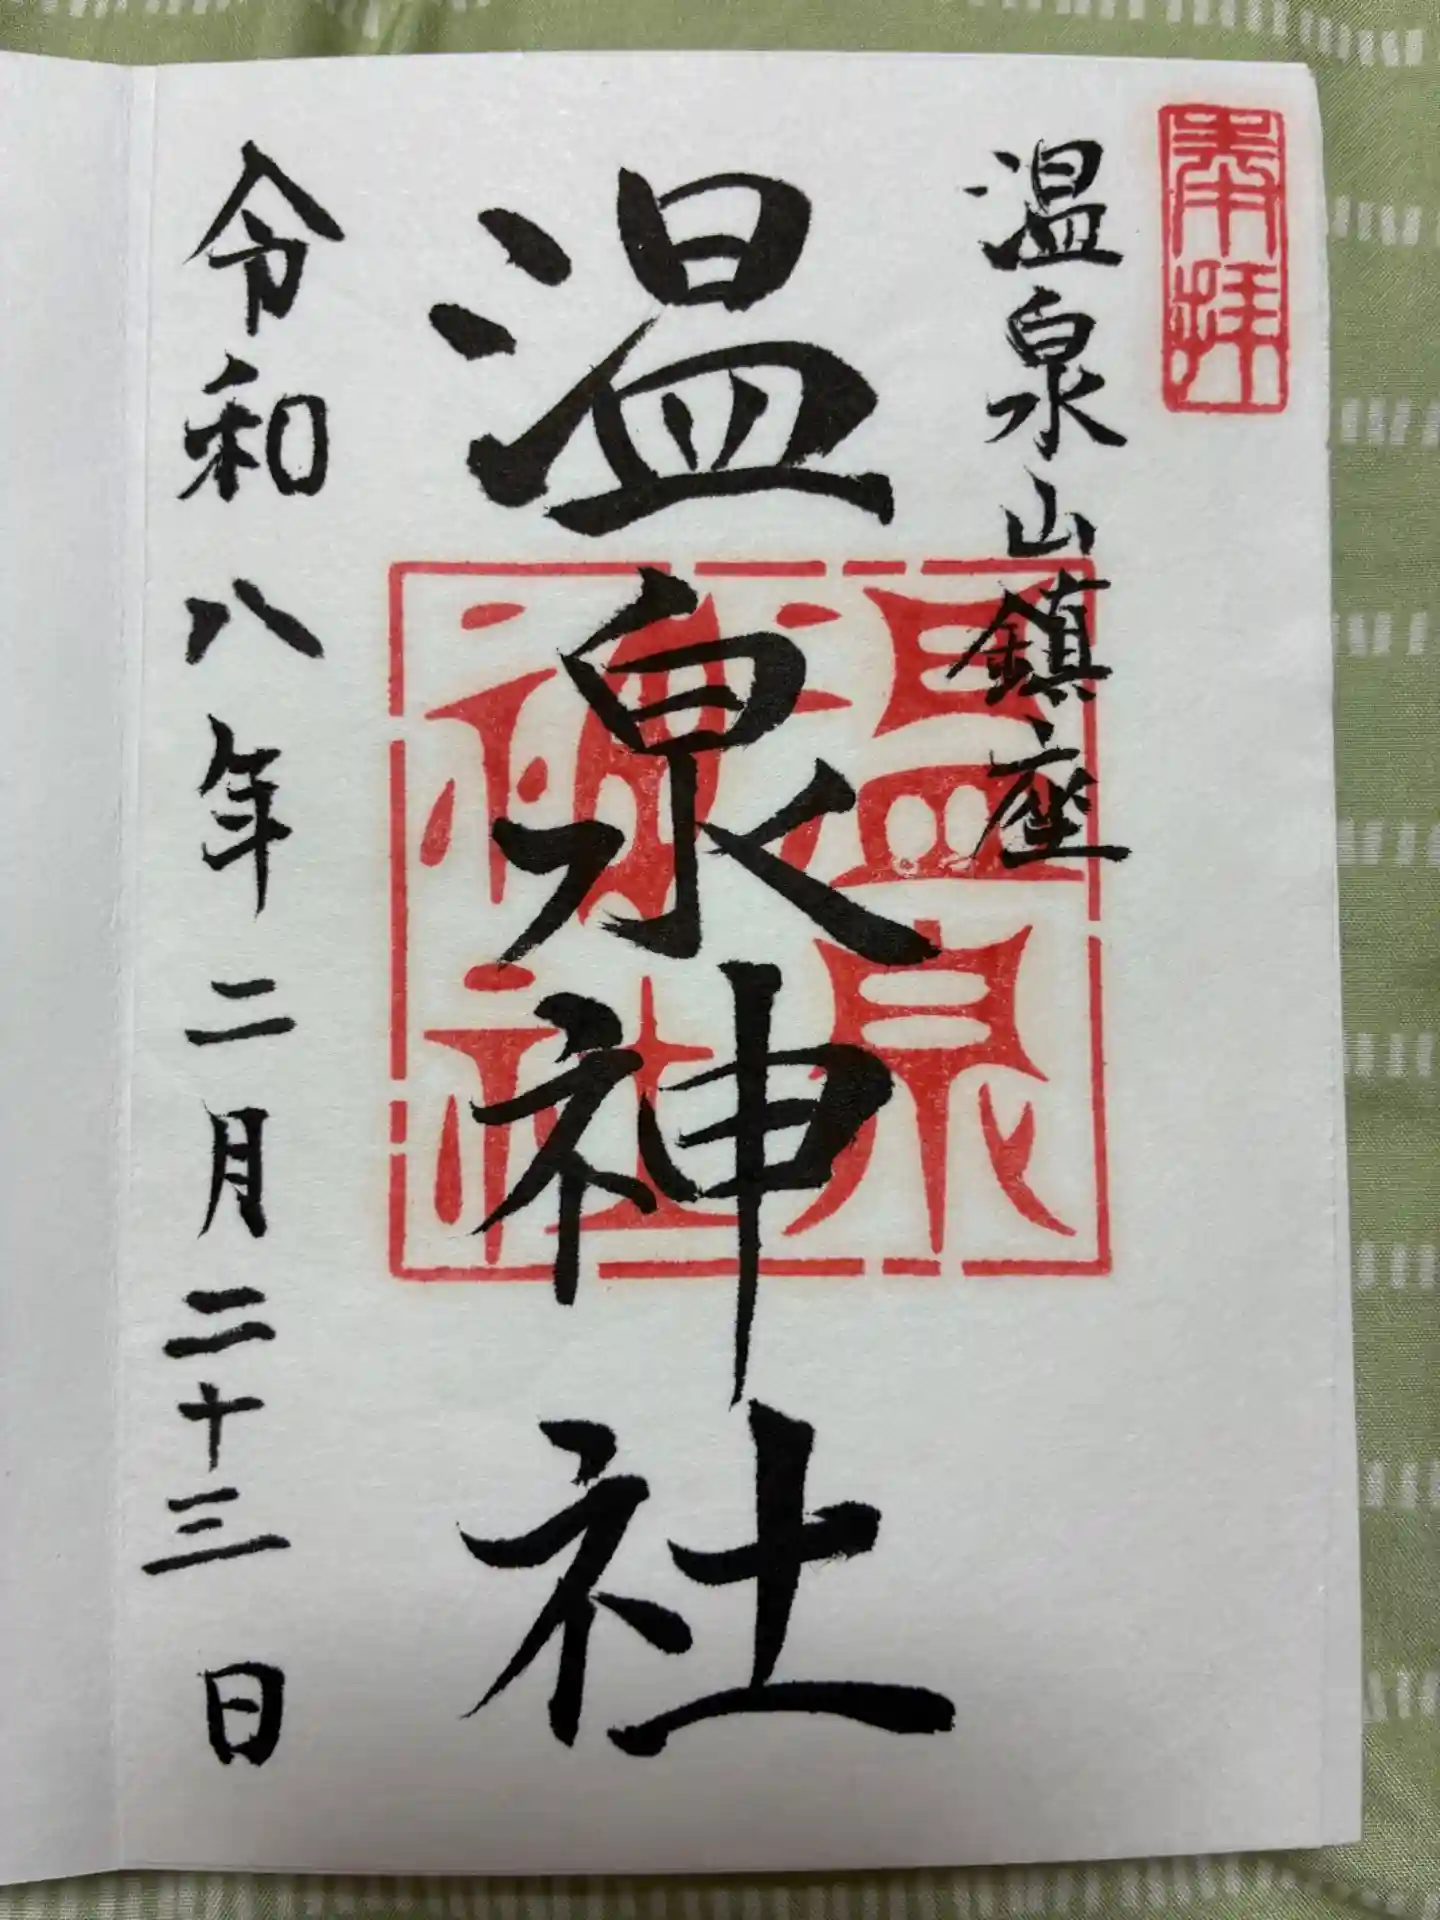 奉拝
温泉山鎮座
温泉神社
温泉神社
令和八年二月二十三日